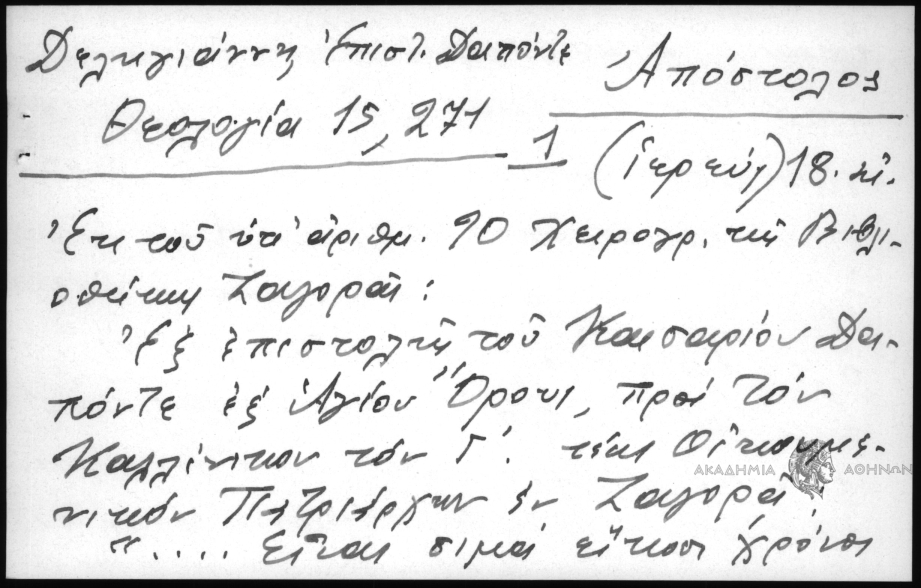 Δεληγιάννη Ἐπιστ. Δαπόντε
Θεολογία 15, 271
Ἀπόστολος
1 (ἱερεύς) 18. αἰ.
Ἐκ τοῦ ὑπ' ἀριθμ. 90 χειρογρ. τῆς Βιβλι-
οθήκης Ζαγορᾶς:
Ἐξ ἐπιστολῆς τοῦ Καισαρίου Δα-
πόντε ἐξ Ἁγίου Ὄρους, πρὸς τὸν
Καλλίνικον τὸν Γ΄. τέως Οἰκουμε-
νικὸν Πατριάρχην ἐν Ζαγορᾷ:
".... εἶναι σιμὰ εἴκοσι χρόνοι
ΑΚΑΔΗΜΙΑ ΑΘΗΝΩΝ